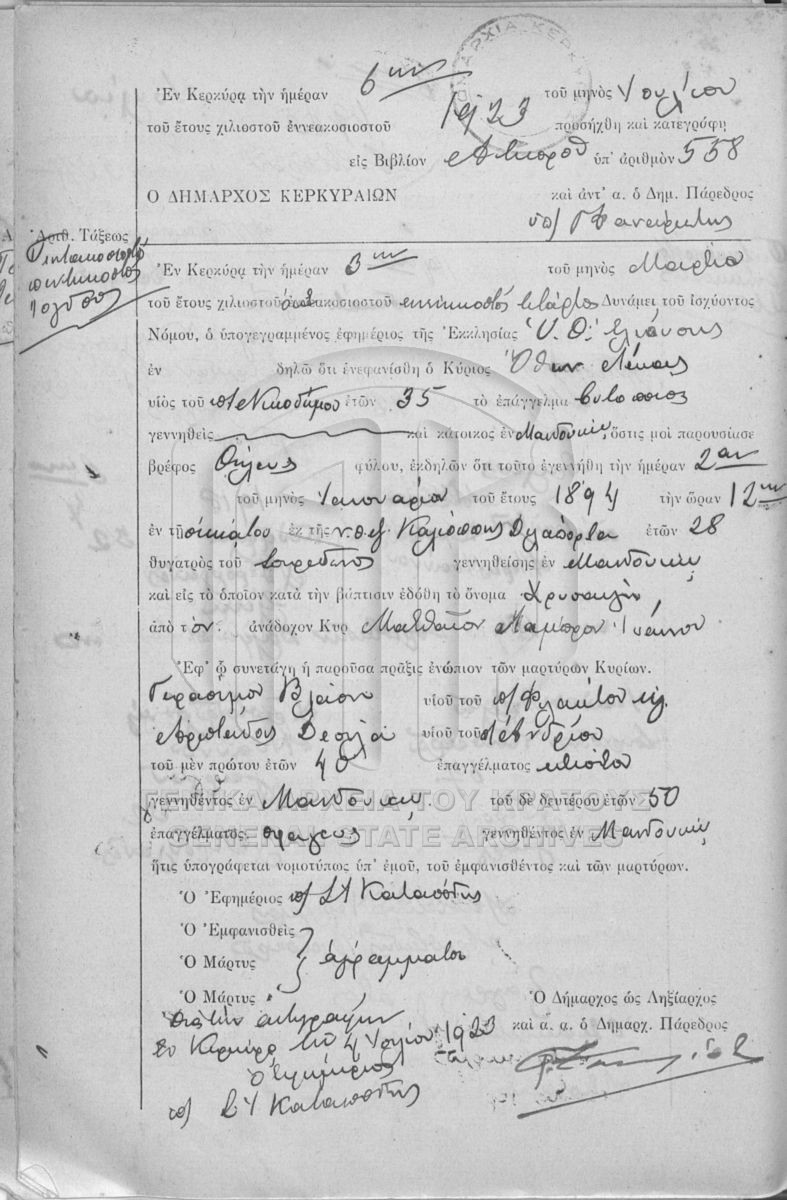 Ἐν Κερκύρᾳ τὴν ἡμέραν 6ην τοῦ μηνὸς Ἰουλίου
τοῦ ἔτους χιλιοστοῦ ἐννεακοσιοστοῦ 1923 προσήχθη καὶ κατεγράφη
εἰς Βιβλίον ὑπ' ἀριθμὸν 558
Ο ΔΗΜΑΡΧΟΣ ΚΕΡΚΥΡΑΙΩΝ καὶ ἀντ' α. ὁ Δημ. Πάρεδρος
Ἀριθ. Τάξεως
πεντακοσιοστὸς
πεντηκοστὸς
ὄγδοος
Ἐν Κερκύρᾳ τὴν ἡμέραν 3ην τοῦ μηνὸς Μαρτίου
τοῦ ἔτους χιλιοστοῦ ὀκτακοσιοστοῦ ἐνενηκοστοῦ τετάρτου Δυνάμει τοῦ ἰσχύοντος
Νόμου, ὁ ὑπογεγραμμένος ἐφημέριος τῆς Ἐκκλησίας Υ. Θ.
ἐν δηλῶ ὅτι ἐνεφανίσθη ὁ Κύριος Ὄθων
υἱὸς τοῦ Νικοδήμου ἐτῶν 35 τὸ ἐπάγγελμα
γεννηθεὶς καὶ κάτοικος ἐν Μανδουκίῳ, ὅστις μοὶ παρουσίασε
βρέφος θήλεως φύλου, ἐκδηλῶν ὅτι τοῦτο ἐγεννήθη τὴν ἡμέραν 2αν
τοῦ μηνὸς Ἰανουαρίου τοῦ ἔτους 1894 τὴν ὥραν 12ην
ἐν τῇ οἰκίᾳ του ἐκ τῆς Καλιόπης ἐτῶν 28
θυγατρὸς τοῦ Σπυρίδωνος γεννηθείσης ἐν Μανδουκίῳ
καὶ εἰς τὸ ὁποῖον κατὰ τὴν βάπτισιν ἐδόθη τὸ ὄνομα Χρυσαυγὴ
ἀπὸ τὸν. ἀνάδοχον Κυρ Ματθαῖον Λάμπρον Ἰωάννου
Ἐφ' ᾧ συνετάγη ἡ παροῦσα πρᾶξις ἐνώπιον τῶν μαρτύρων Κυρίων.
Γερασίμου Βλάχου υἱοῦ τοῦ
Ἀριστείδης υἱοῦ τοῦ Ἀνδρέου
τοῦ μὲν πρώτου ἐτῶν 40 ἐπαγγέλματος κτίστου
γεννηθέντος ἐν Μανδουκίῳ. τοῦ δὲ δευτέρου ἐτῶν 50
ἐπαγγέλματος γεννηθέντος ἐν Μανδουκίῳ
ΓΕΝΙΚΑ ΑΡΧΕΙΑ ΤΟΥ ΚΡΑΤΟΥΣ
GENERAL STATE ARCHIVES
ἥτις ὑπογράφεται νομοτύπως ὑπ' ἐμοῦ, τοῦ ἐμφανισθέντος καὶ τῶν μαρτύρων.
Ὁ Ἐφημέριος υπ/ Σπ Καταπόδης
Ὁ Ἐμφανισθεὶς
Ὁ Μάρτυς ἀγράμματοι
Ὁ Μάρτυς Ὁ Δήμαρχος ὡς Ληξίαρχος
διὰ τὴν ἀντιγραφὴν καὶ α. α. ὁ Δημαρχ. Πάρεδρος
Ἐν Κερκύρᾳ τῇ 4 Ἰουλίου 1923
Ὁ Ἐφημέριος
υπ/ Σπ Καταπόδης